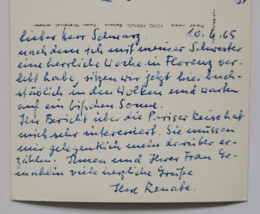 lieber Herr Schwarz, 10.4.65
nachdem ich mit meiner Schwester
eine herrliche Woche in Florenz ver-
lebt habe, sitzen wir jetzt hier buch-
stäblich in den Wolken und warten
auf ein bißchen Sonne.
Ihr Bericht über die Pariser Reise hat
mich sehr interessiert. Sie müssen
mir gelegentlich mehr darüber er-
zählen. Ihnen und Ihrer Frau Ge-
mahlin viele herzliche Grüße
Ihre Renate.